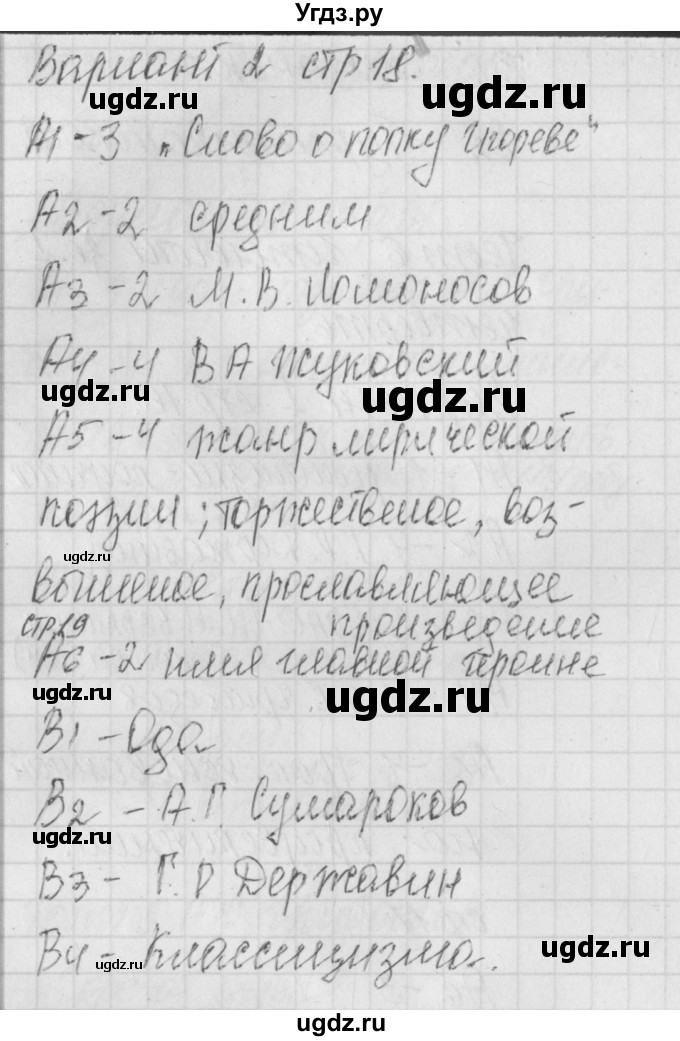 Угдз.ру
Вариант 2 стр 18.
ugdz.ru ugdz.ru
А1 - 3 „Слово о полку Игореве"
А2 - 2 средним
А3 - 2 М. В. Ломоносов
А4 - 4 В А Жуковский
ugdz.ru ugdz.ru
А5 - 4 жанр лирической
поэзии; торжественое, воз-
ugdz.ru
вышеное, прославляющее
стр 19 произведение
А6 - 2 имя главной героине
ugdz.ru
В1 - Ода
В2 - А. П. Сумароков
ugdz.ru ugdz.ru
В3 - Г. Р Державин
В4 - Классицизма.
ugdz.ru ugdz.ru
ugdz.ru